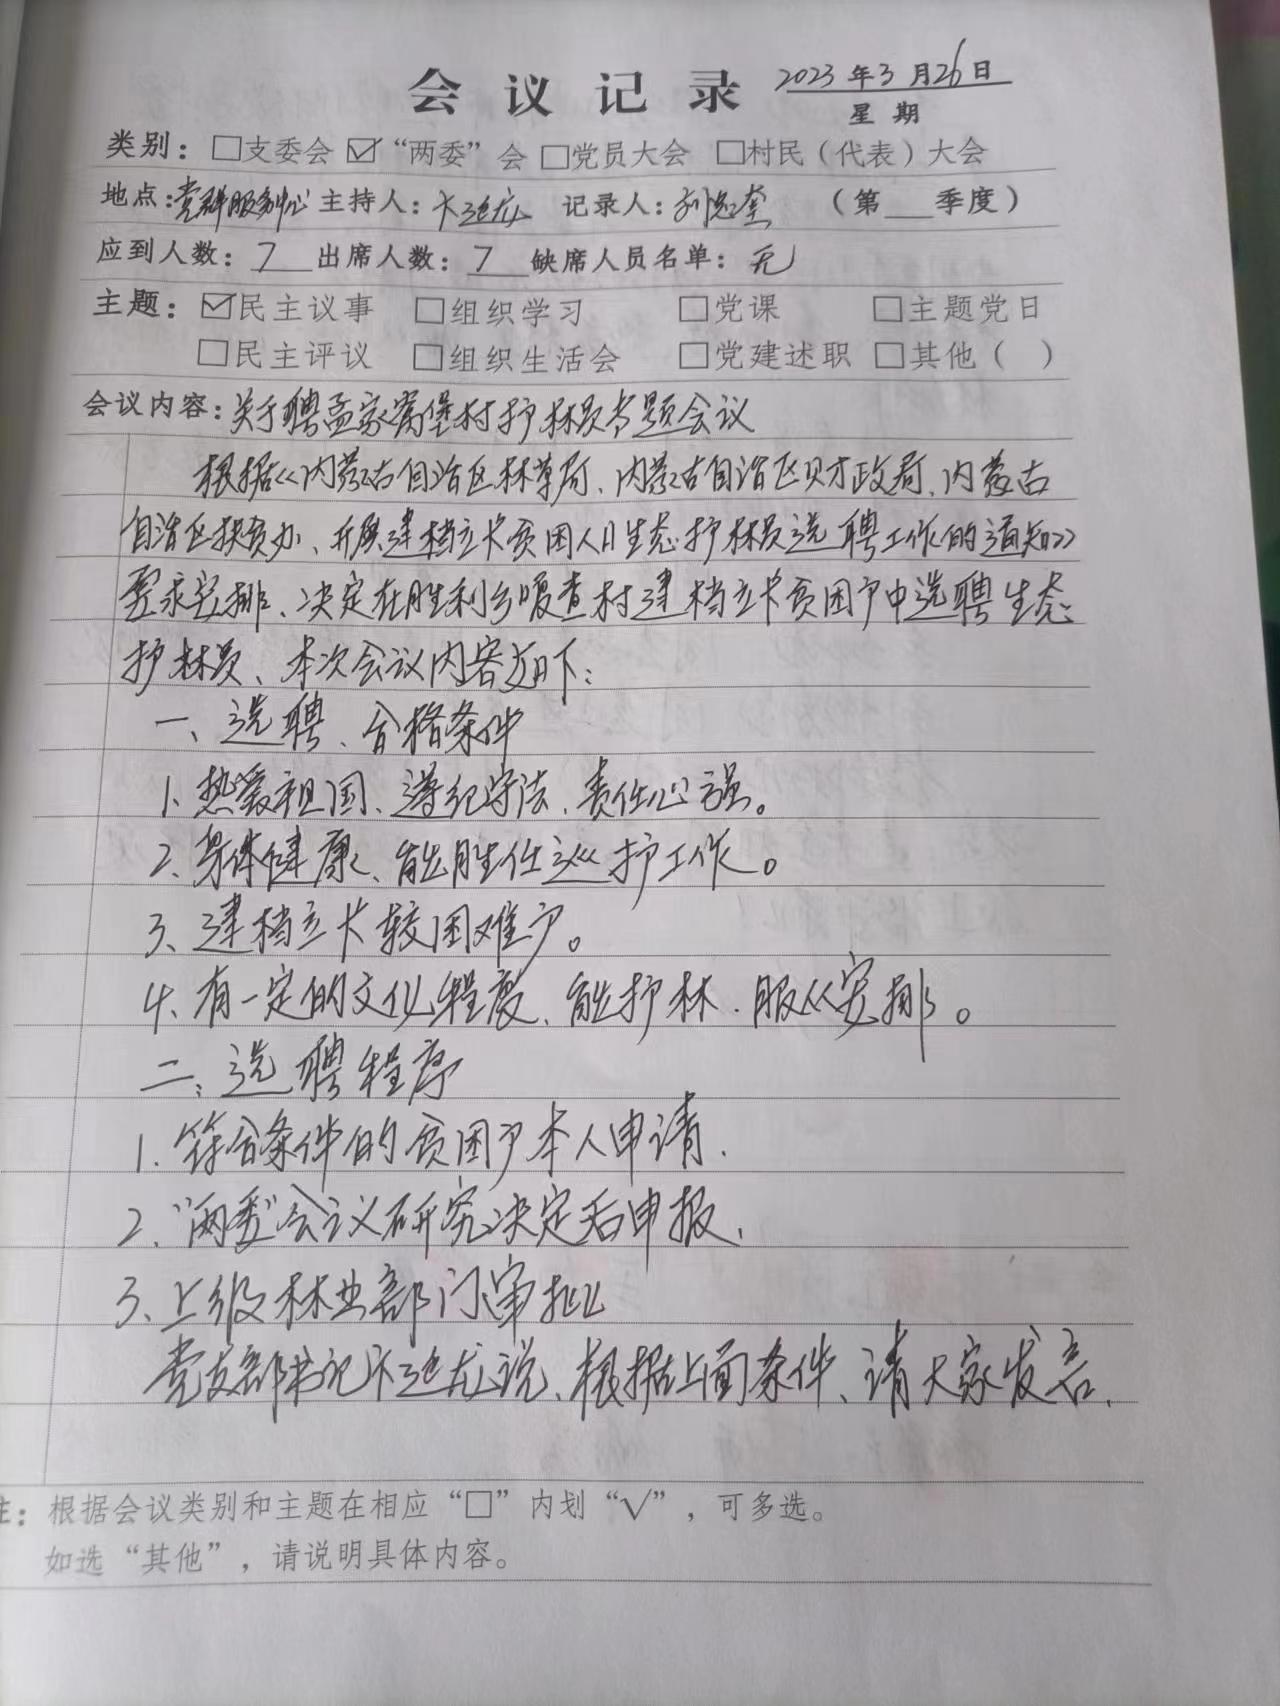 会议记录 2023年3月26日
星期
类别：□支委会 ☑“两委”会 □党员大会 □村民（代表）大会
地点：党群服务中心 主持人：卞延龙 记录人：刘 （第 季度）
应到人数：7 出席人数：7 缺席人员名单：无
主题：☑民主议事 □组织学习 □党课 □主题党日
□民主评议 □组织生活会 □党建述职 □其他（ ）
会议内容：关于聘孟家窝堡村护林员专题会议
根据《内蒙古自治区林草局、内蒙古自治区财政局、内蒙古
自治区扶贫办、开展建档立卡贫困人口生态护林员选聘工作的通知》
要求安排、决定在胜利乡暖查村建档立卡贫困户中选聘生态
护林员、本次会议内容如下：
一、选聘、合格条件
1、热爱祖国、遵纪守法、责任心强。
2、身体健康、能胜任巡护工作。
3、建档立卡较困难户。
4、有一定的文化程度、能护林、服从安排。
二、选聘程序
1、符合条件的贫困户本人申请、
2、“两委”会议研究决定后申报、
3、上级林业部门审批
党支部书记卞延龙说、根据上面条件、请大家发言、
注：根据会议类别和主题在相应“□”内划“√”，可多选。
如选“其他”，请说明具体内容。